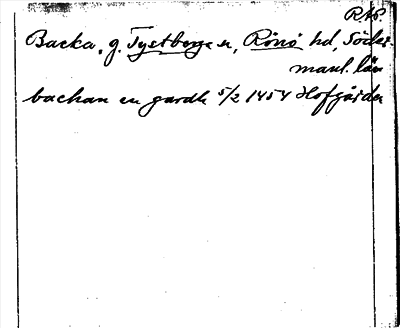 RAP.
Backa, g. Tystberga sn, Rönö hd, Söder-
manl. län
bachan en gardh 5/2 1454 Hofgården